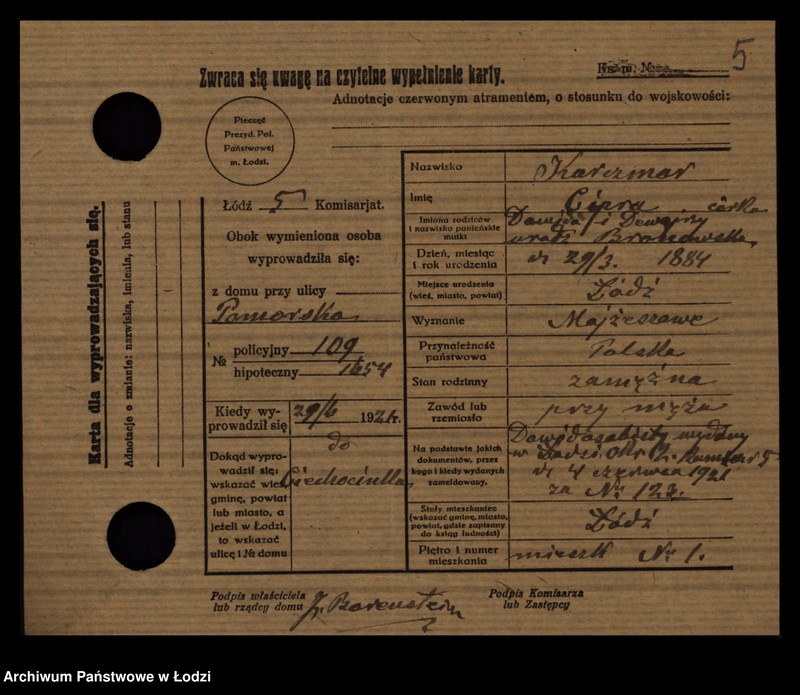 5
Zwraca się uwagę na czytelne wypełnienie karty.
Adnotacje czerwonym atramentem, o stosunku do wojskowości:
Pieczęć
Prezyd. Pol.
Państwowej
m. Łodzi.
Karta dla wyprowadzających się.
Adnotacje o zmianie: nazwiska, imienia, lub stanu
Łódź 5 Komisarjat.
Obok wymieniona osoba
wyprowadziła się:
z domu przy ulicy
Pomorska
№ policyjny 109
hipoteczny 1654
Kiedy wy-
prowadził się 29/6 1921 r.
Dokąd wypro-
wadził się:
wskazać wieś
gminę, powiat
lub miasto, a
jeżeli w Łodzi,
to wskazać
ulicę i № domu
do
Ciechocinka
Nazwisko Karczmar
Imię Cipra córka
Imiona rodziców
i nazwisko panieńskie
matki
Dawida i Dewojry
Dzień, miesiąc
i rok urodzenia
29/3. 1884
Miejsce urodzenia
(wieś, miasto, powiat)
Łódź
Wyznanie Mojżeszowe
Przynależność
państwowa
Polska
Stan rodzinny zamężna
Zawód lub
rzemiosło
przy mężu
Na podstawie jakich
dokumentów, przez
kogo i kiedy wydanych
zameldowany.
Dowód osobisty wydany
w Łodzi
4 czerwca 1921
za № 123.
Stały mieszkaniec
(wskazać gminę, miasto,
powiat, gdzie zapisany
do ksiąg ludności)
Łódź
Piętro i numer
mieszkania
mieszk № 1.
Podpis właściciela
lub rządcy domu
Podpis Komisarza
lub Zastępcy
Archiwum Państwowe w Łodzi